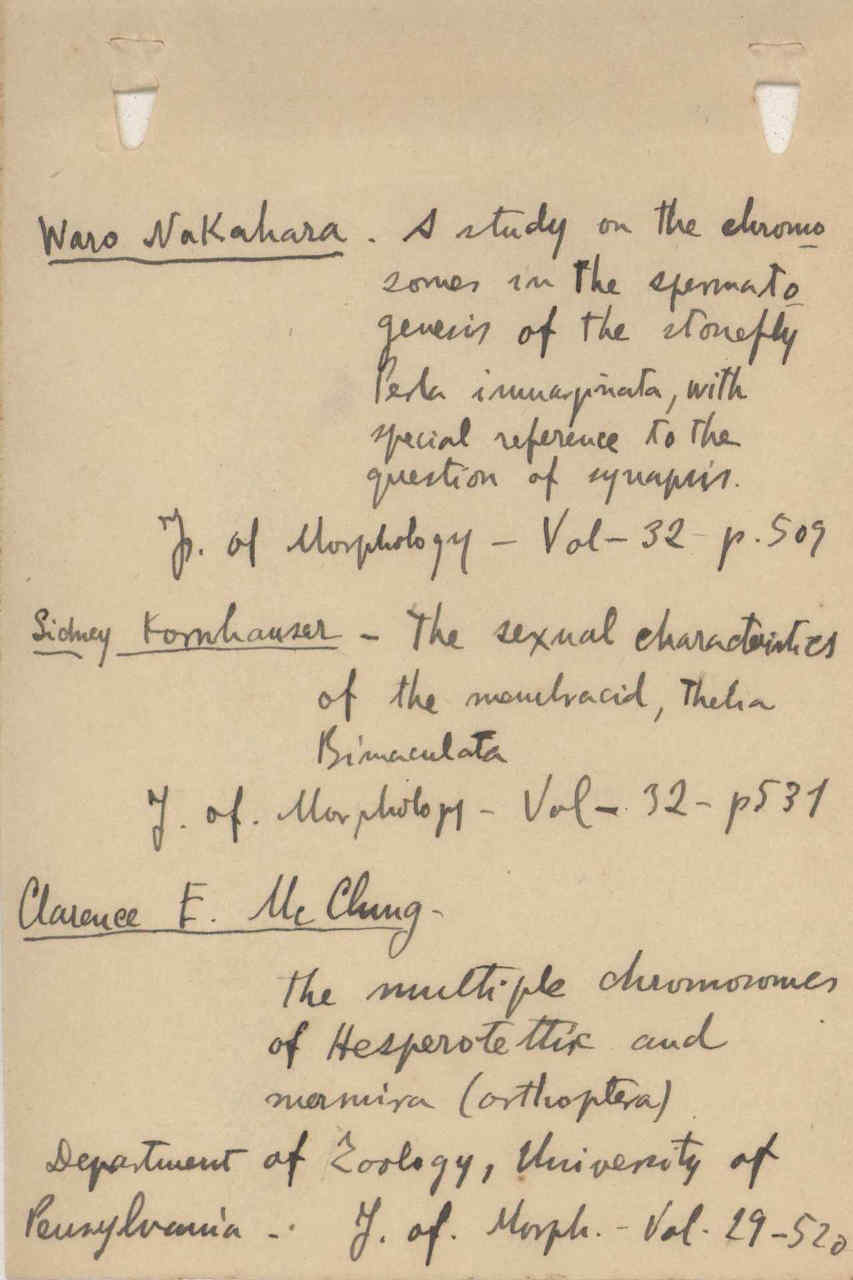 Waro Nakahara. A study on the chromo
somes in the spermato
genesis of the stonefly
Perla immarginata, with
special reference to the
question of synapsis.
J. of Morphology - Vol - 32 - p. 509
Sidney Kornhauser - The sexual characteristics
of the membracid, Thelia
Bimaculata
J. of. Morphology - Vol - 32 - p 531
Clarence E. Mc Clung -
The multiple chromosomes
of Hesperotettix and
mermira (orthoptera)
Department of Zoology, University of
Pensylvania - . J. of. Morph. - Vol. 29 - 520